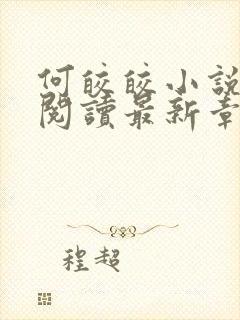 何皎皎小說
閱讀最新章
程超